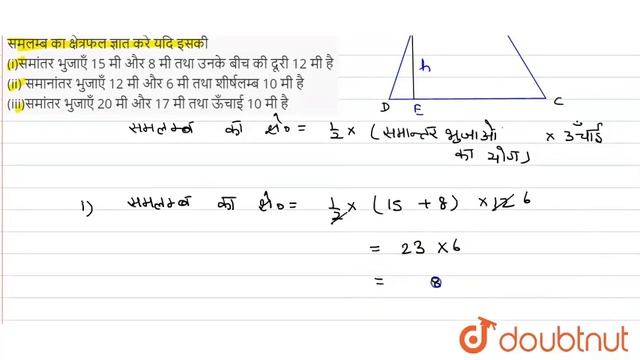 समलम्ब का क्षेत्रफल ज्ञात करे यदि इसकी
(i)समांतर भुजाएँ 15 मी और 8 मी तथा उनके बीच की दूरी 12 मी है
(ii) समानांतर भुजाएँ 12 मी और 6 मी तथा शीर्षलम्ब 10 मी है
(iii)समांतर भुजाएँ 20 मी और 17 मी तथा ऊँचाई 10 मी है
h
D E C
समलम्ब का क्षे० = 1/2 × (समान्तर भुजाओ का योग) × ऊँचाई
1) समलम्ब का क्षे० = 1/2 × (15 + 8) × 12 6
= 23 × 6
= 8
doubtnut